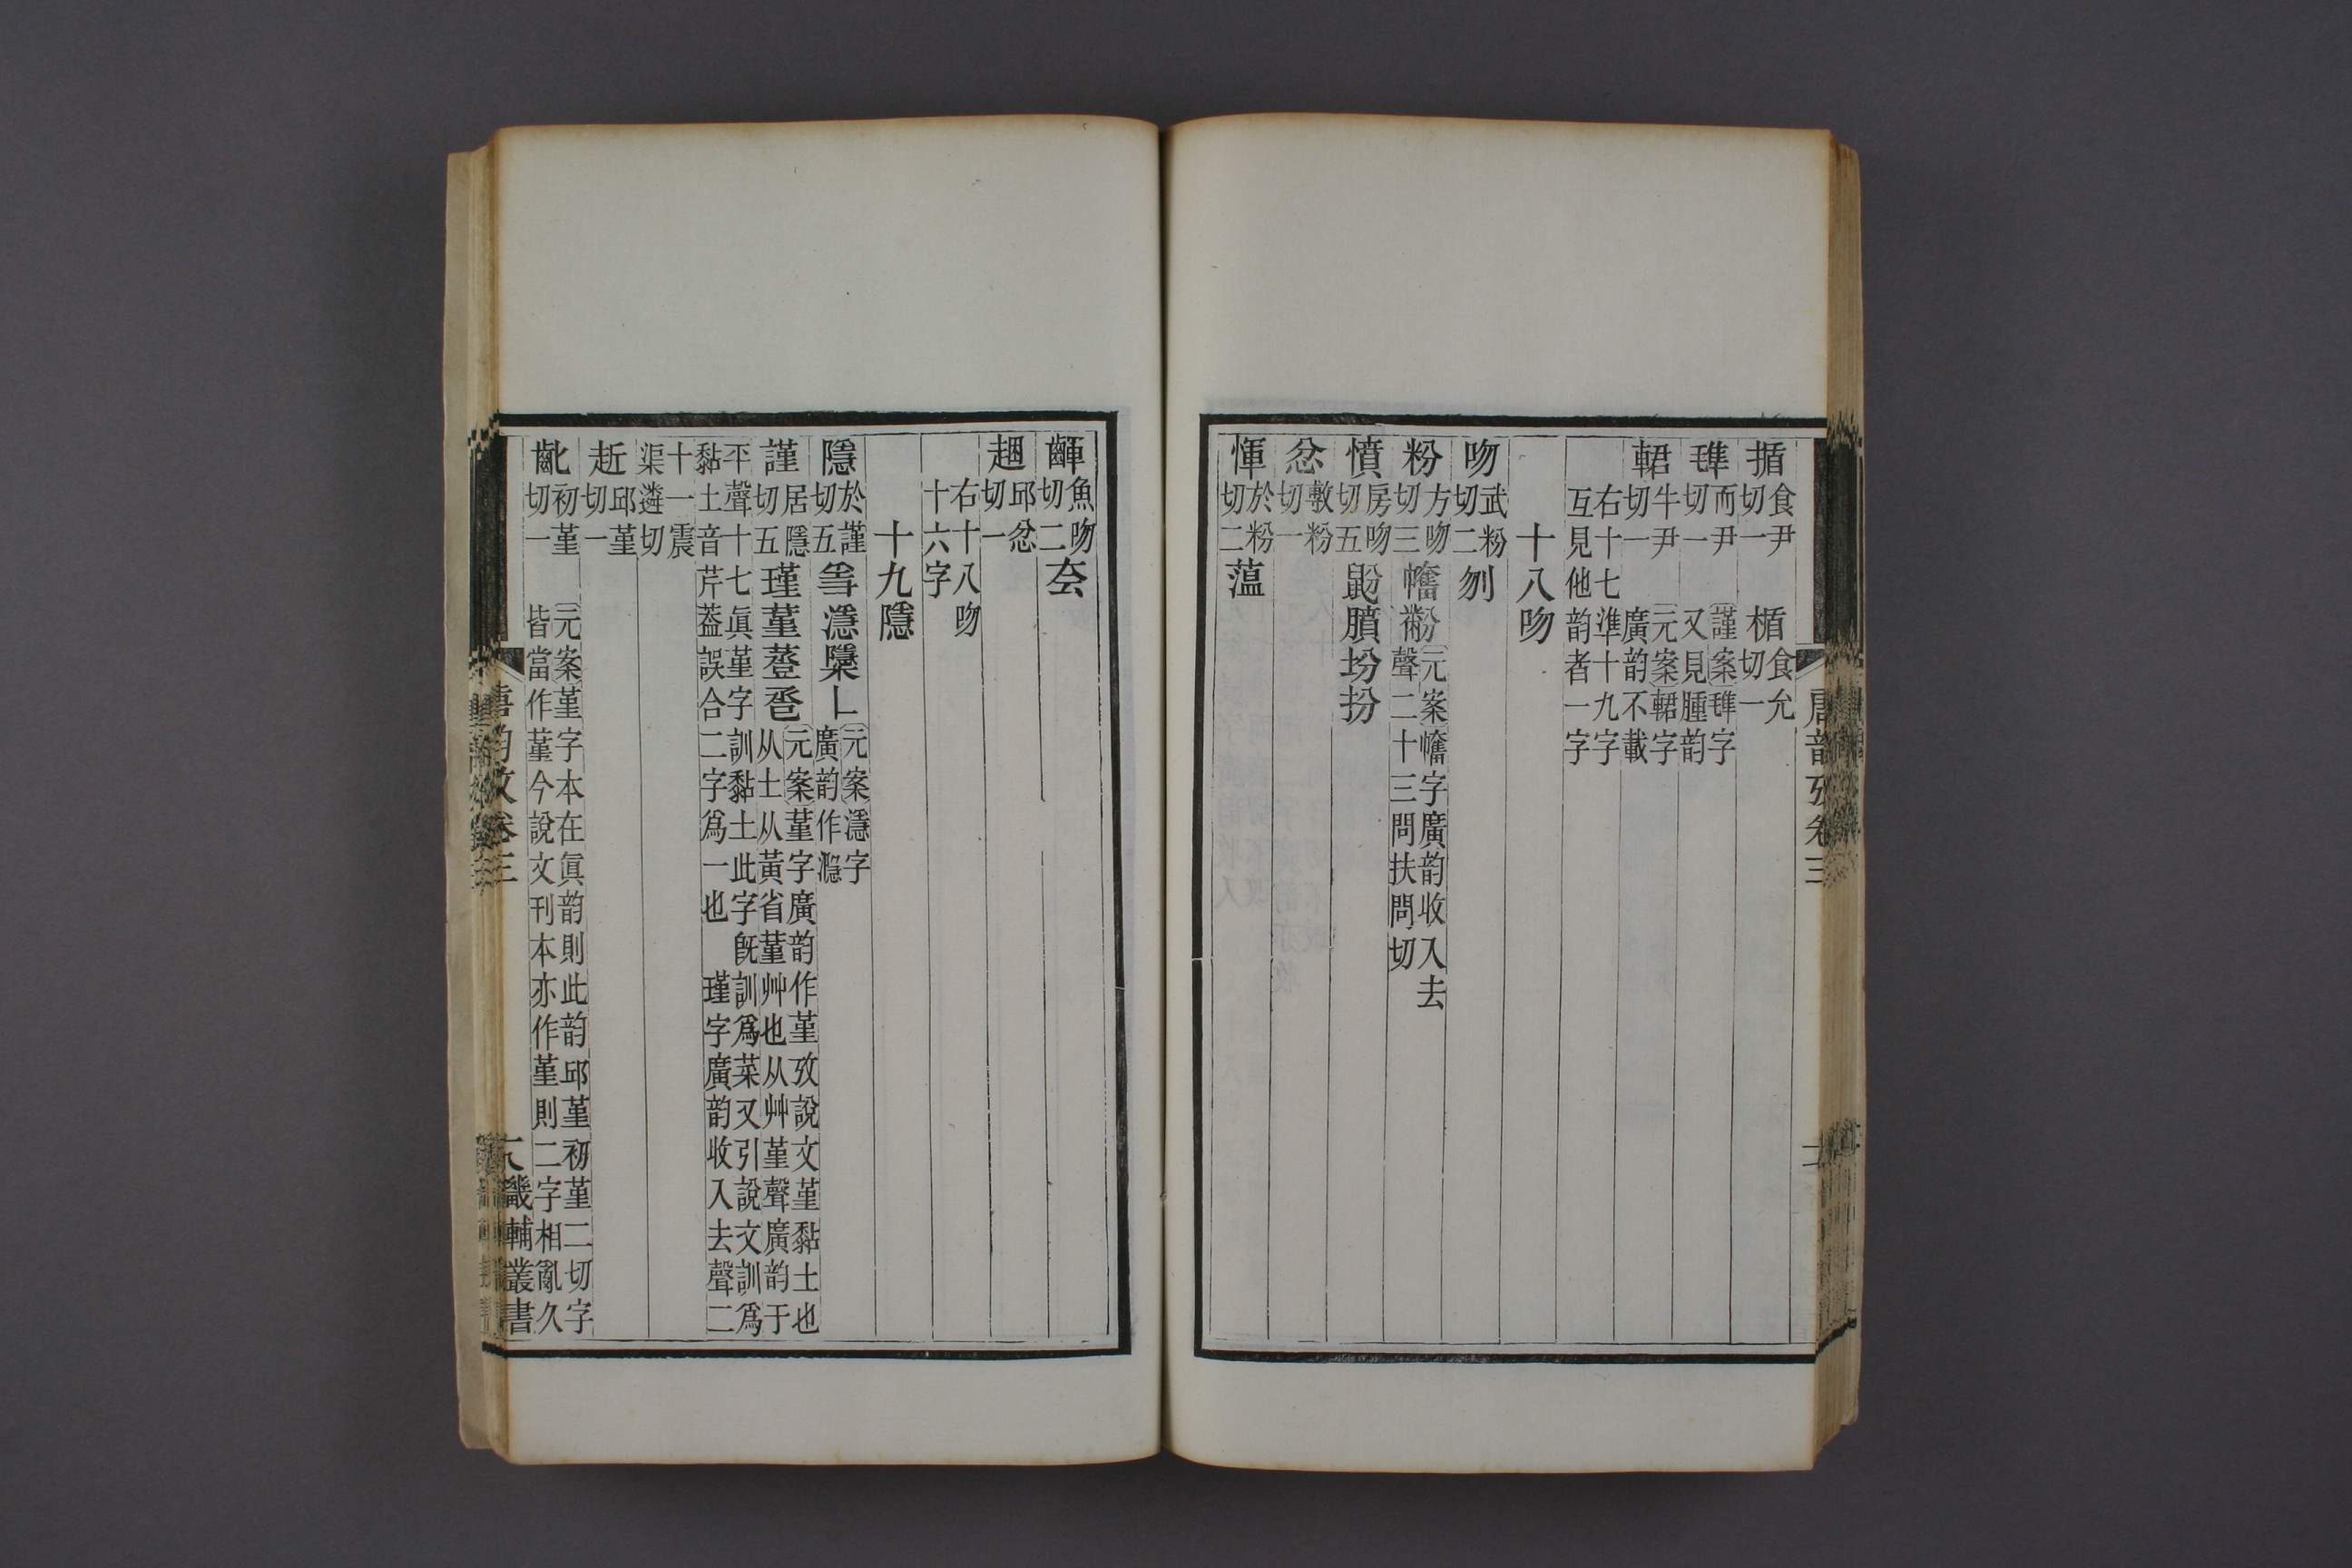 唐韵攷卷三
揗食尹切一　楯食允切一
㲝而尹切一　謹案㲝字又見腫韵
輑牛尹切一　元案輑字廣韵不載
右十七準十九字互見他韵者一字
十八吻
吻武粉切二刎
粉方吻切三幡黺元案幡字廣韵收入去聲二十三問扶問切
憤房吻切五鼢膹坋扮
忿敷粉切一
惲於粉切二薀
齳魚吻切二㚠
趜邱忿切一
右十八吻十六字
十九隱
隱於謹切五㥯濦檃乚元案濦字廣韵作㶏
謹居隱切五瑾堇蓳卺元案堇字廣韵作堇攷說文堇黏土也从土从黃省蓳艸也从艸堇聲廣韵于
平聲十七眞堇字訓黏土此字旣訓爲菜又引說文訓爲黏土音芹葢誤合二字爲一也　瑾字廣韵收入去聲二
十一震渠遴切
赾邱堇切一
齔初堇切一　元案堇字本在眞韵則此韵邱堇初堇二切字皆當作蓳今說文刊本亦作堇則二字相亂久
唐韵攷卷三
畿輔叢書